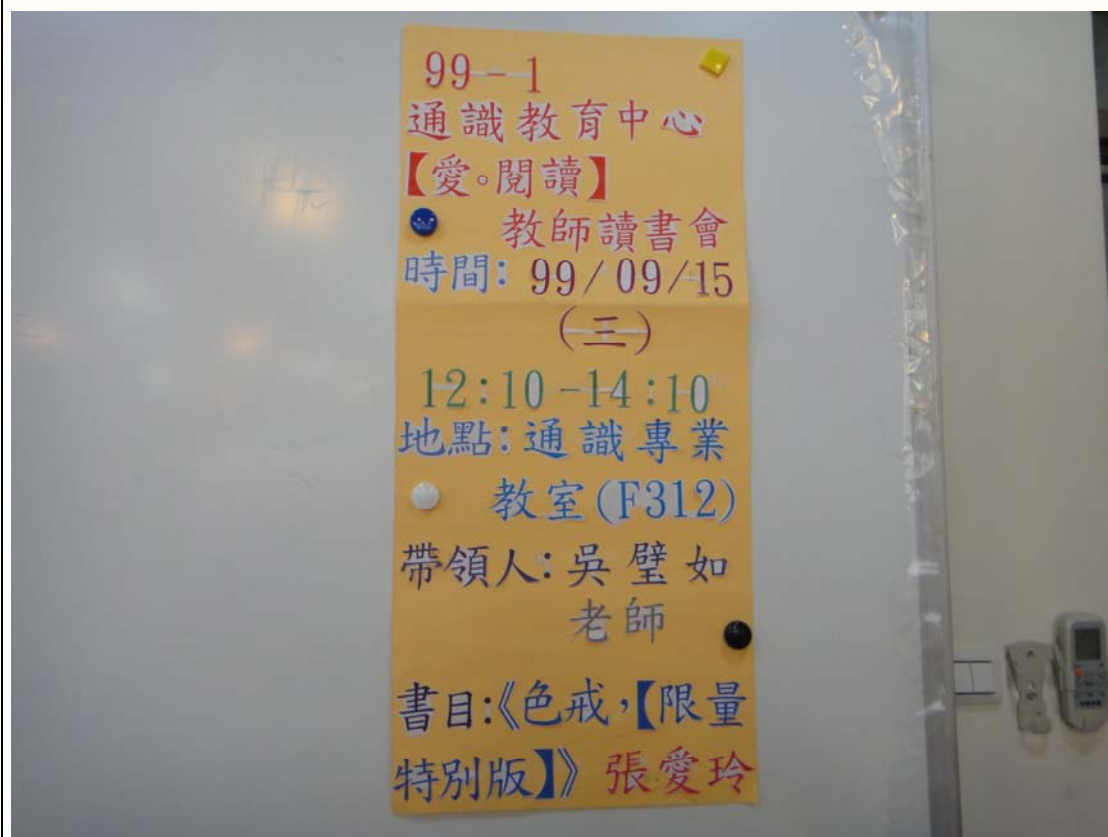 99-1
通識教育中心
【愛。閱讀】
教師讀書會
時間：99/09/15
(三)
12:10-14:10
地點：通識專業
教室(F312)
帶領人：吳璧如
老師
書目：《色戒，【限量
特別版】》張愛玲